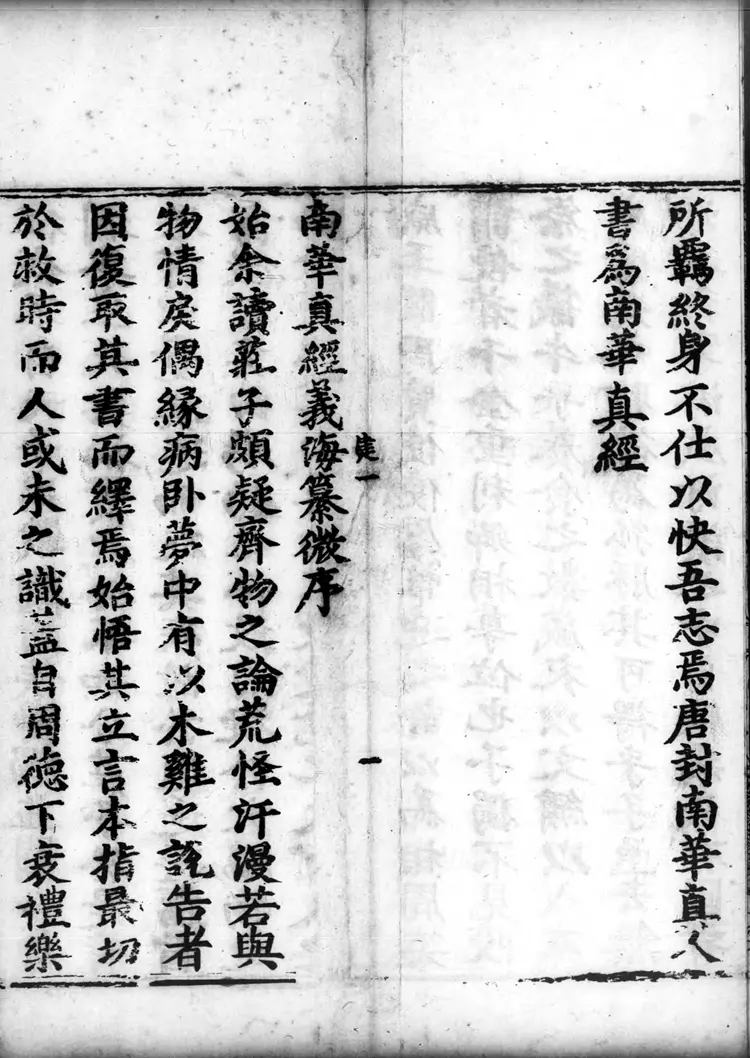 所羈終身不仕以快吾志焉唐封南華真人
書爲南華真經
一
一
南華真經義海纂微序
始余讀莊子頗疑齊物之論荒怪汗漫若與
物情戾偶緣病卧夢中有以木雞之說告者
因復取其書而繹焉始悟其立言本指最切
於救時而人或未之識蓋自周德下衰禮樂